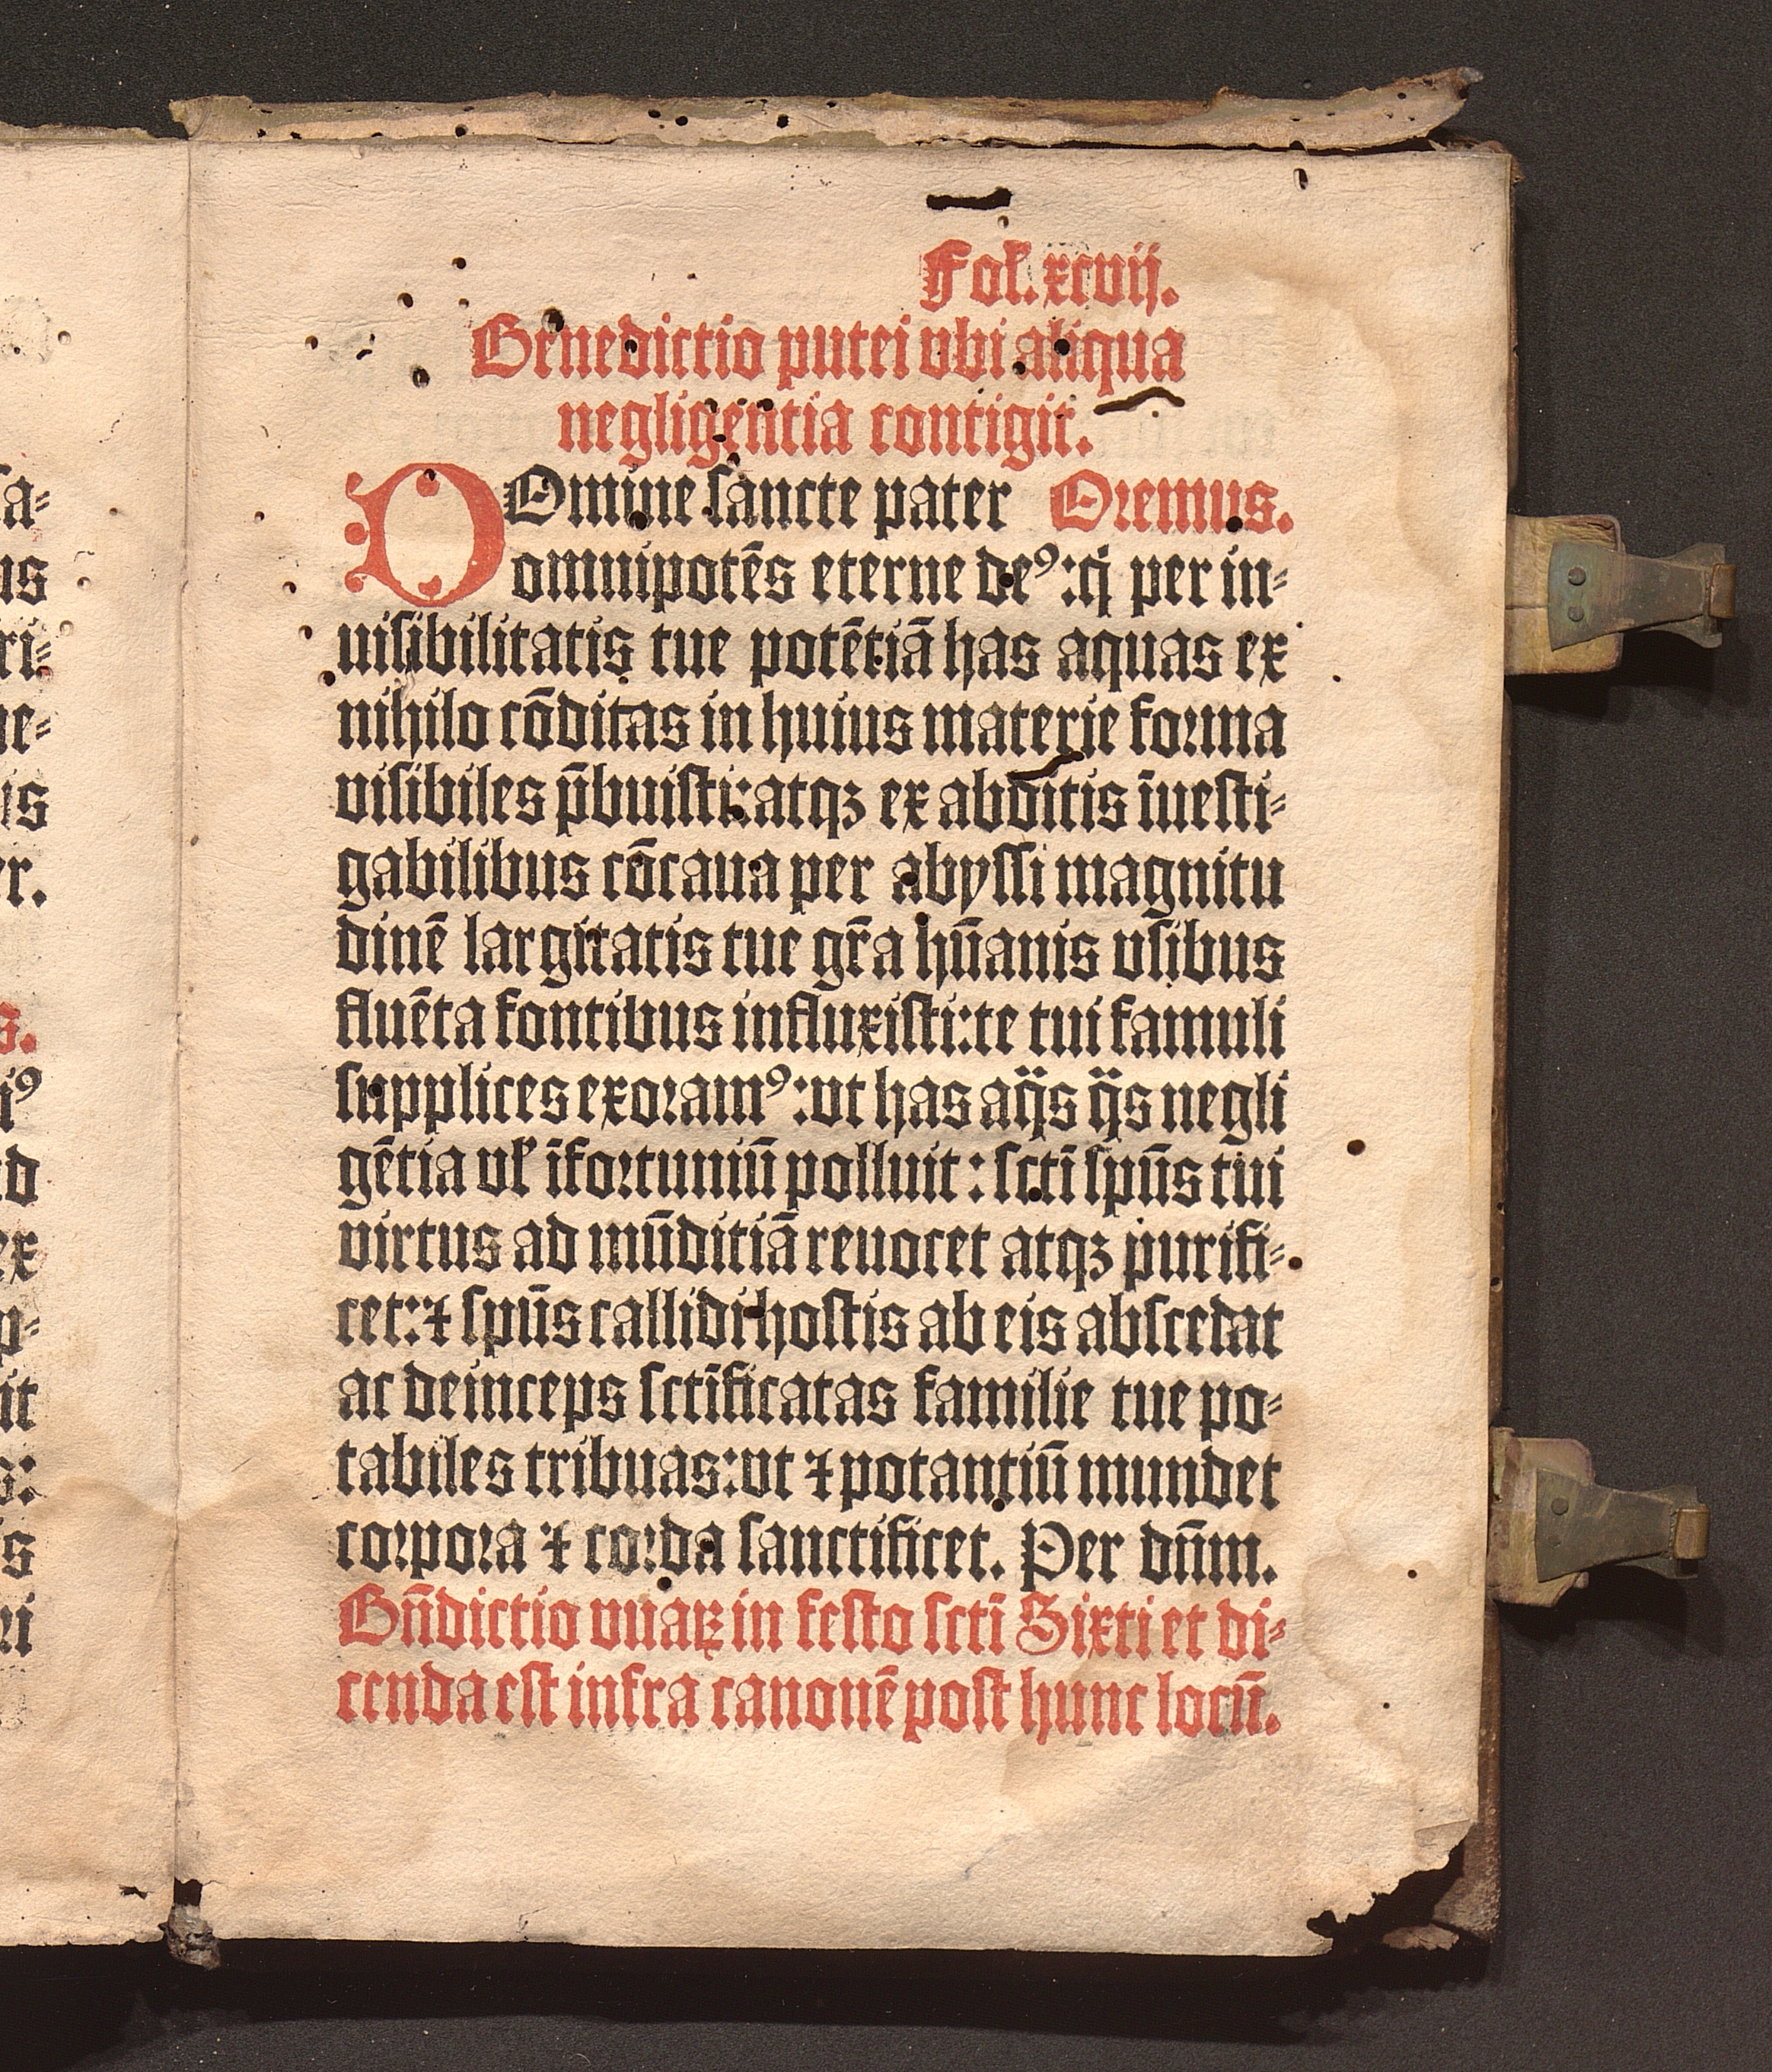 Fol. xcvij.
Benedictio putei vbi aliqua
negligentia contigit.
DOmine sancte pater Oremus.
omnipotēs eterne deꝰ: q̇ per in⸗
uisibilitatis tue potētiā has aquas ex
nihilo cōditas in huius materie forma
visibiles p̄buisti: atqꝫ ex abditis īuesti⸗
gabilibus cōcaua per abyssi magnitu
dinē largitatis tue gr̄a hūanis vsibus
fluēta fontibus influxisti: te tui famuli
supplices exoramꝰ: vt has aq̈s q̈s negli
gētia vl' īfortuniū polluit: sctī spūs tui
virtus ad mūditiā reuocet atqꝫ purifi⸗
cet: ⁊ spūs callidi hostis ab eis abscedat
ac deinceps sctīficatas familie tue po⸗
tabiles tribuas: vt ⁊ potantiū mundet
corpora ⁊ corda sanctificet. Per dn̄m.
Bn̄dictio vuaꝝ in festo sctī Sixti et di⸗
cenda est infra canonē post hunc locū.
sa⸗
us
ri⸗
ne⸗
is
er.
s.
iꝰ
ad
ex
p⸗
it
s:
is
ri